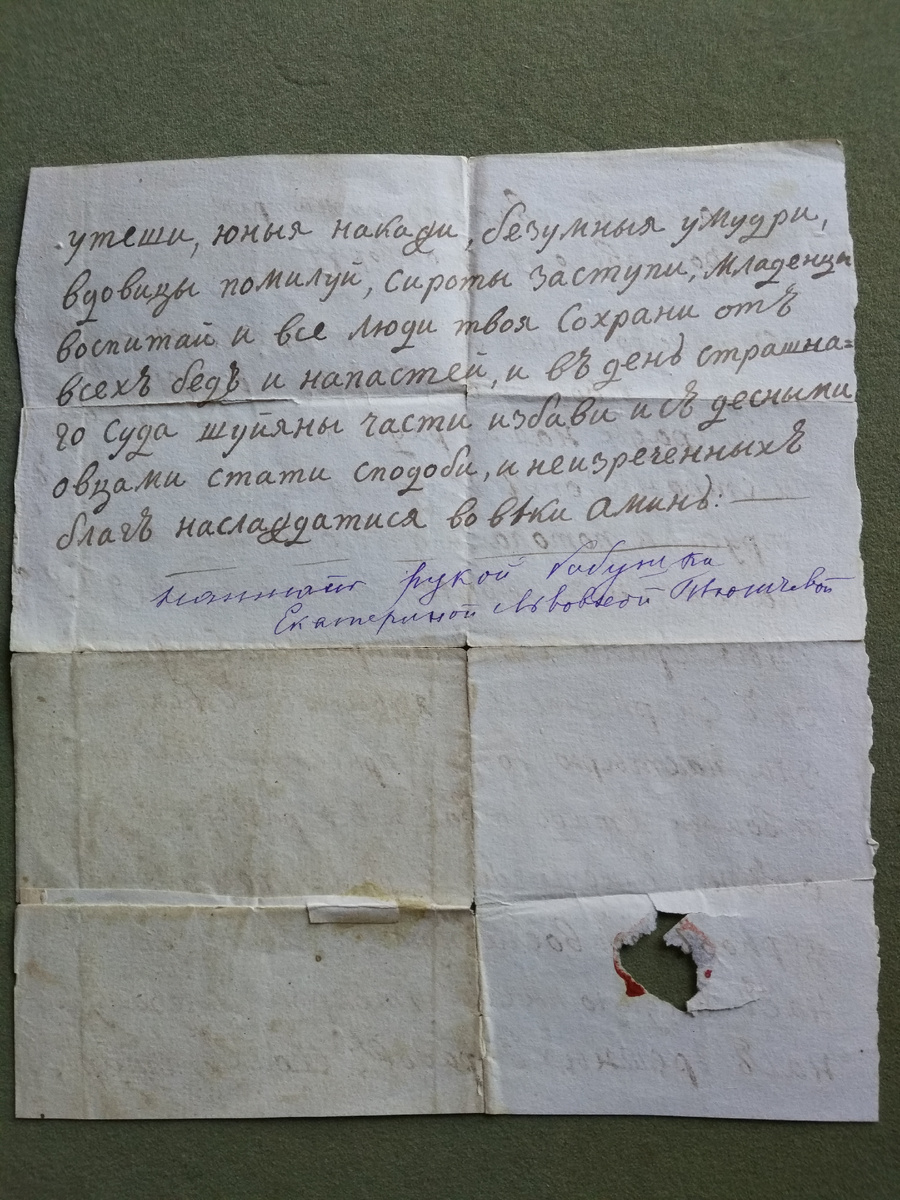 утеши, юныя накажи, безумныя умудри,
вдовицы помилуй, сироты заступи, младенцы
воспитай и все люди твоя сохрани отъ
всехъ бедъ и напастей, и въ день страшна=
го суда шуйяны части избави и съ десными
овцами стати сподоби, и неизреченныхъ
благъ наслаждатися во вѣки аминь:
рукой бабушки
Екатериной Львовной Тютчевой